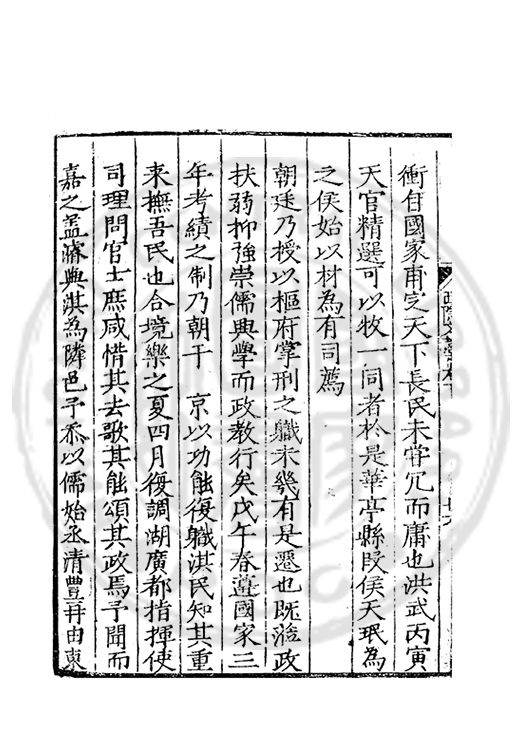 衝自國家甫定天下長民未甞冗而庸也洪武丙寅
天官精選可以牧一同者於是華亭縣段侯天珉為
之侯始以材為有司薦
朝廷乃授以樞府掌刑之職未幾有是遷也既蒞政
扶弱抑強崇儒興學而政教行矣戊午春遵國家三
年考績之制乃朝于　京以功能復職淇民知其重
来撫吾民也合境樂之夏四月復調湖廣都指揮使
司理問官士庶咸惜其去歌其能頌其政焉予聞而
嘉之盖濬與淇為隣邑予忝以儒始丞清豊再由東